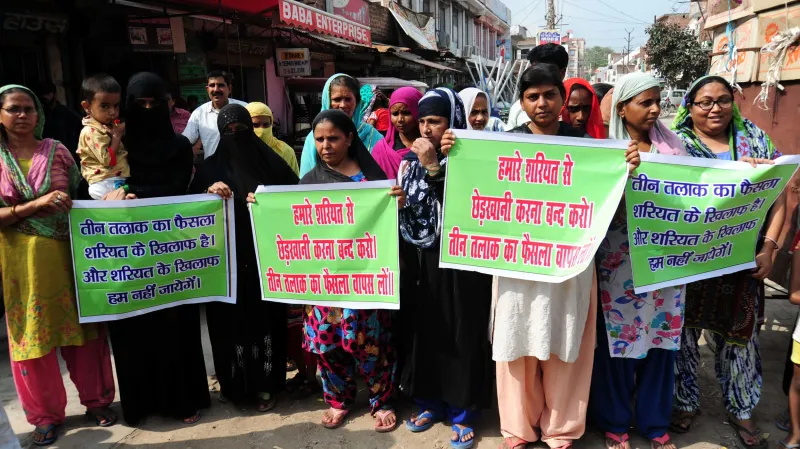 BABA ENTERPRISE
तीन तलाक का फैसला
शरियत के खिलाफ है।
और शरियत के खिलाफ
हम नहीं जायेगें।
हमारे शरियत से
छेड़खानी करना बन्द करो।
तीन तलाक का फैसला वापस लो।।
हमारे शरियत से
छेड़खानी करना बन्द करो।
तीन तलाक का फैसला वापस लो।
तीन तलाक का फैसला
शरियत के खिलाफ है।
और शरियत के खिलाफ
हम नहीं जायेगें।